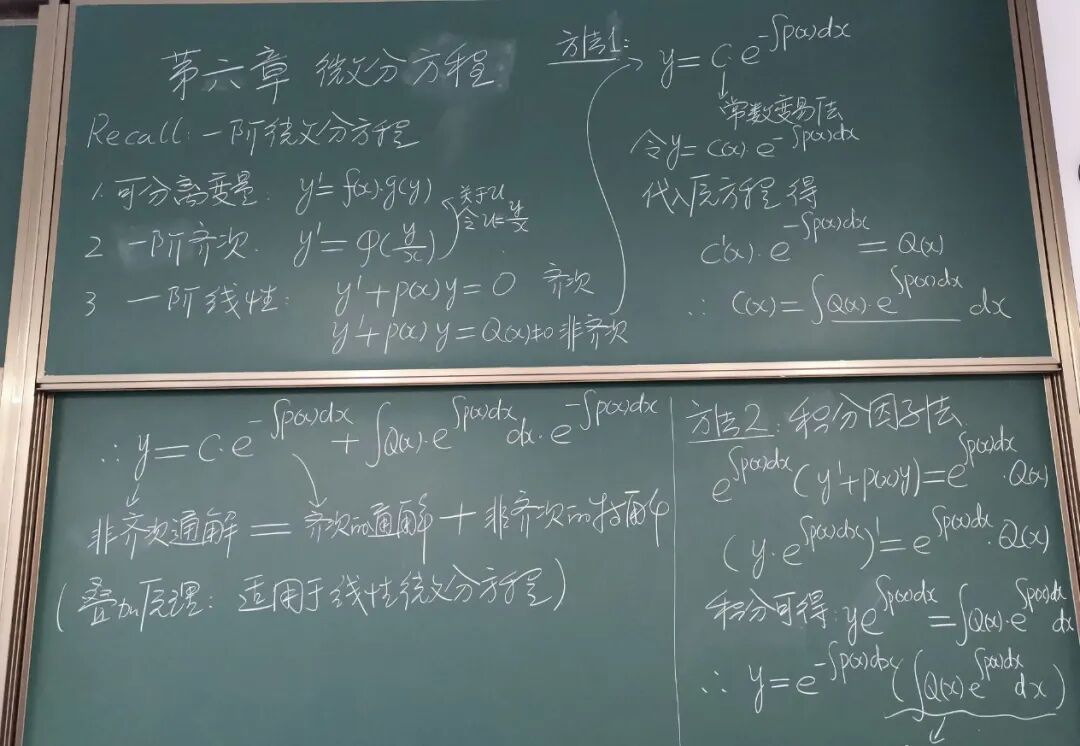 第六章 微分方程
Recall: 一阶微分方程
1. 可分离变量: y'=f(x)·g(y)
2 一阶齐次. y'=φ(y/x) 关于u 令u=y/x
3 一阶线性: y'+p(x)y=0 齐次
y'+p(x)y=Q(x)≠0 非齐次
方法1: y=C·e^{-∫p(x)dx}
常数变易法
令y=C(x)·e^{-∫p(x)dx}
代入原方程得
C'(x)·e^{-∫p(x)dx}=Q(x)
∴ C(x)=∫Q(x)·e^{∫p(x)dx}dx
∴ y=C·e^{-∫p(x)dx}+∫Q(x)·e^{∫p(x)dx}dx·e^{-∫p(x)dx}
非齐次通解=齐次的通解+非齐次的特解
(叠加原理: 适用于线性微分方程)
方法2: 积分因子法
e^{∫p(x)dx}(y'+p(x)y)=e^{∫p(x)dx}·Q(x)
(y·e^{∫p(x)dx})'=e^{∫p(x)dx}·Q(x)
积分可得: ye^{∫p(x)dx}=∫Q(x)·e^{∫p(x)dx}dx
∴ y=e^{-∫p(x)dx}(∫Q(x)e^{∫p(x)dx}dx)